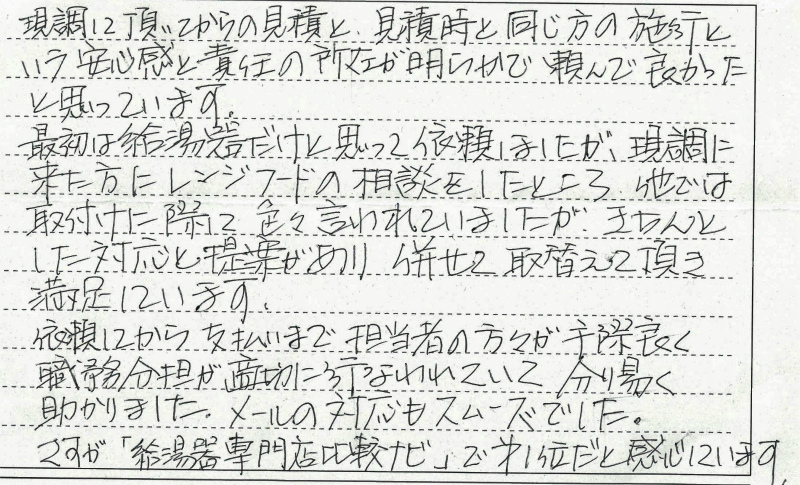 現調して頂いてからの見積と、見積時と同じ方の施行と
いう安心感と責任の所在が明らかで頼んで良かった
と思っています。
最初は給湯器だけと思って依頼しましたが、現調に
来た方にレンジフードの相談をしたところ 他では
取付けに際して色々言われていましたが、きちんと
した対応と提案があり 併せて取替えて頂き
満足しています。
依頼してから支払いまで担当者の方々が手際良く
職務分担が適切に行なわれていて 分り易く
助かりました。メールの対応もスムーズでした。
さすが「給湯器専門店比較ナビ」で第1位だと感心しています。